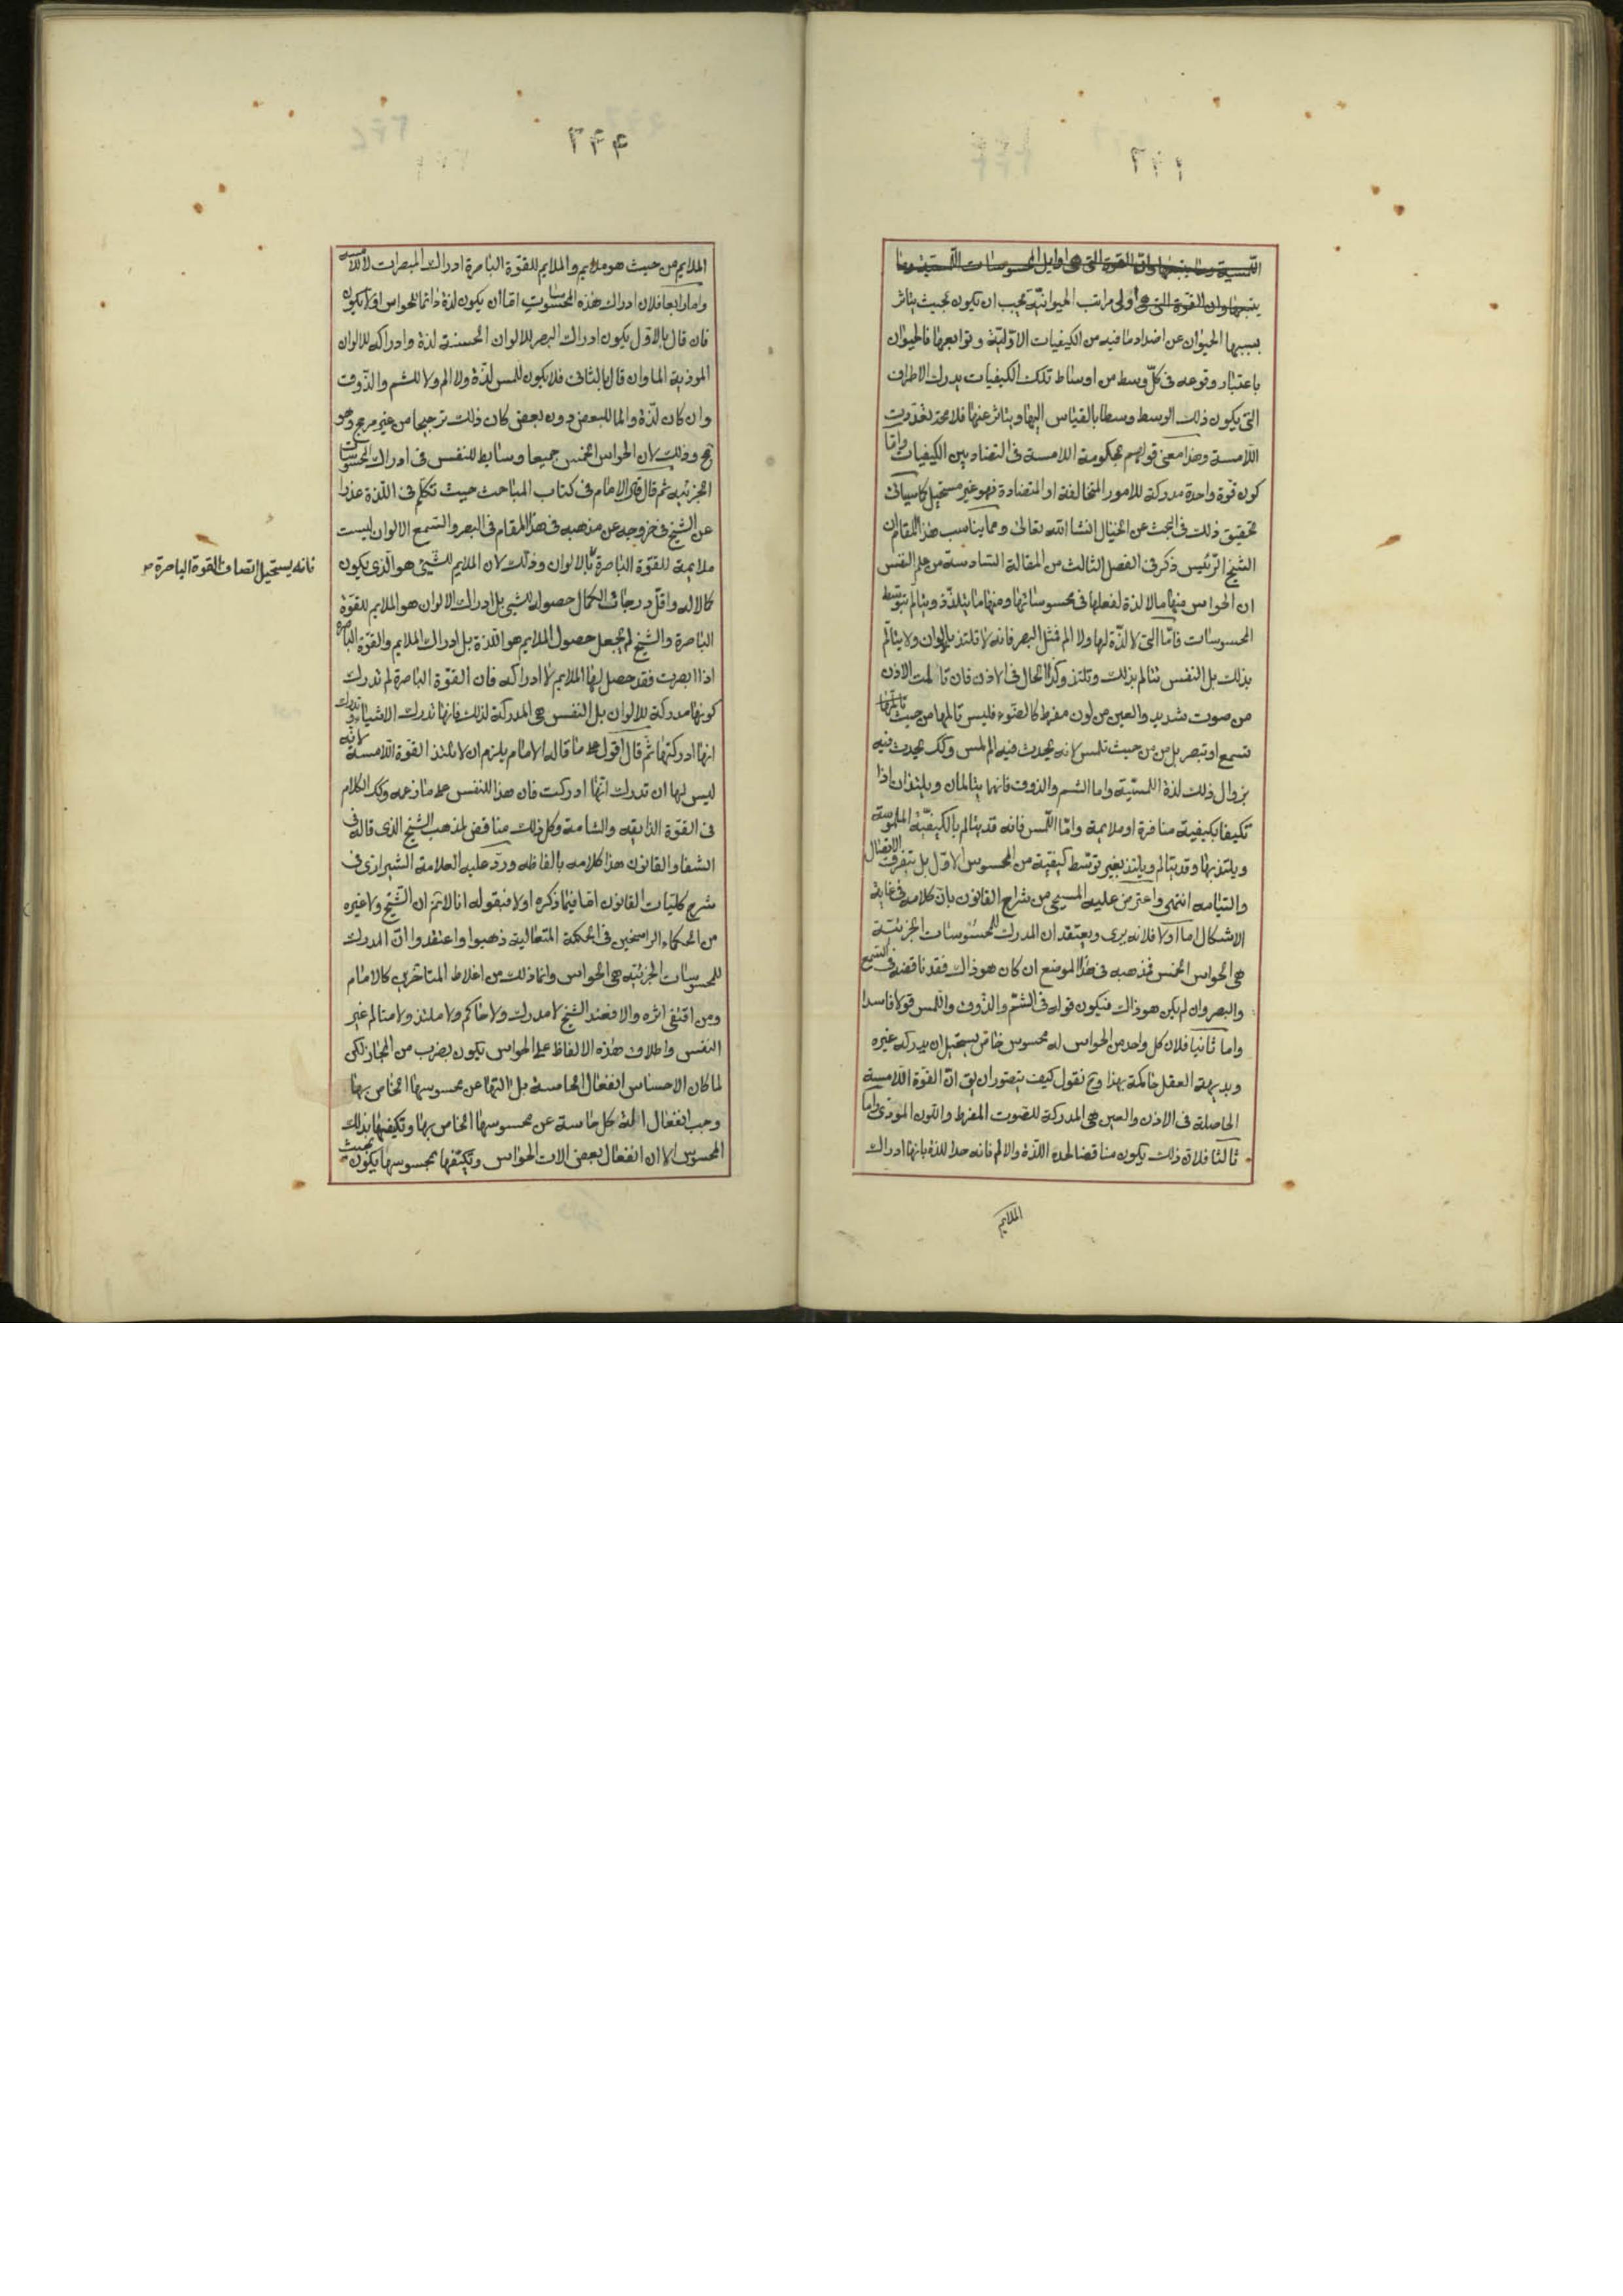 يتبعها وان القوة التى هى اولى مراتب الحيوانية يجب ان يكون بحيث يتاثر
بسببها الحيوان عن اضداد ما فيه من الكيفيات الاوّلية وتوابعها فالحيوان
باعتبار وقوعه فى كلّ وسط من اوساط تلك الكيفيات يدرك الاطراف
التى يكون ذلك الوسط وسطا بالقياس اليها ويتاثر عنها فلا محذ بغدّوت
اللامسة وهذا معنى قولهم بحكومة اللامسة فى التضاد بين الكيفيات وامّا
كون قوة واحدة مدركة للامور المتخالفة او المتضادة فهو غير مستحيل كما سياتى
تحقيق ذلك فى البحث عن الخيال انشا الله تعالى ومما يناسب هذا المقام ان
الشيخ الرئيس ذكر فى الفصل الثالث من المقالة السادسة من علم النفس
ان الحواس منها ما لا لذة لفعلها فى محسوساتها ومنها ما يتلذّذ ويتالم بتوسط
المحسوسات فامّا التى لا لذّة لها ولا الم فمثل البصر فانه لا تلتذ بالالوان ولا يتالّم
بذلك بل النفس تتالم بذلك وتلتذ وكذا الحال فى الاذن فان تالمت الاذن
من صوت شديد والعين من لون مفرط كالضوء فليس تالمها من حيث
تسمع او تبصر بل من حيث تلمس لانه يحدث فيه الم لمس وكك يحدث فيه
بزوال ذلك لذة اللمسيّة واما الشم والذوق فانهما يتالمان ويلتذان اذا
تكيفا بكيفية منافرة او ملايمة وامّا اللّمس فانه قد يتالم بالكيفيّة الملموسة
ويلتذ بها وقد يتالم ويلتذ بغير توسّط كيفيّة من المحسوس الاوّل بل بتفرق الاتصال
والتيامه انتهى واعترض عليه المسيحى من شراح القانون بانّ كلامه فى غاية
الاشكال اما اولا فلانه يرى ويعتقد ان المدرك للمحسوسات الجزئيّة
هى الحواس الخمس فمذهبه فى هذا الموضع ان كان هو ذاك فقد ناقضه فى السّمع
والبصر وان لم يكن هو ذاك فيكون قوله فى الشم والذّوق واللّمس قولا فاسدا
واما ثانيا فلان كل واحد من الحواس له محسوس خاصّ يستحيل ان يدركه غيره
وبديهة العقل حاكمة بهذا وح نقول كيف يتصور ان يق انّ القوّة اللامسة
الحاصلة فى الاذن والعين هى المدركة للصّوت المفرط واللّون الموذى واما
ثالثا فلان ذلك يكون مناقضا لحد اللذّة والالم فانه حدا للذة بانها ادراك
الملايم
٣٣٤
الملايم من حيث هو ملايم والملايم للقوّة الباصرة ادراك المبصرات لا اللامسه
واما رابعا فلان ادراك هذه المحسوسات امّا ان يكون لذة دائما للحواس او لا يكون
فان قال بالاوّل يكون ادراك البصر للالوان الحسنة لذة وادراكه للالوان
الموذية الما وان قال بالثانى فلا يكون للمس لذّة ولا الم ولا للشم والذّوق
وان كان لذّة والما للبعض دون بعض كان ذلك ترجيحا من غير مرجح وهو
مح وذلك لان الحواس الخمس جميعا وسايط للنفس فى ادراك المحسوسات
الجزئيه ثم قال قال الامام فى كتاب المباحث حيث تكلّم فى اللّذة عذرا
عن الشيخ فى خروجه عن مذهبه فى هذا المقام فى البصر والسّمع الالوان ليست
ملايمة للقوّة الباصرة بالالوان وذلك لان الملايم للشّئ هو الّذى يكون
كمالا له واقلّ درجات الكمال حصوله للشئ بل ادراك الالوان هو الملايم للقوّة
الباصرة والشيخ لم يجعل حصول الملايم هو اللذة بل ادراك الملايم والقوّة الباصرة
اذا ابصرت فقد حصل لها الملايم لا ادراكه فان القوّة الباصرة لم تدرك
كونها مدركة للالوان بل النفس هى المدركة لذلك فانها تدرك الاشياء وتدرك
انها ادركتها ثمّ قال اقول على ما قاله الامام يلزم ان لا تلتذ القوّة اللّامسة لانّه
ليس لها ان تدرك انّها ادركت فان هذا للنفس على ما زعمه وكك الكلام
فى القوّة الذايقه والشامة وكل ذلك مناقض لمذهب الشيخ الذى قاله فى
الشفا والقانون هذا كلامه بالفاظه وردّ عليه العلامة الشيرازى فى
شرح كليّات القانون امّا فيما ذكره اولا فبقوله انا لا نم ان الشّيخ ولا غيره
من الحكماء الراسخين فى الحكمة المتعالية ذهبوا واعتقدوا انّ المدرك
للمحسوسات الجزئيّه هى الحواس وانما ذلك من اغلاط المتاخرين كالامام
ومن اقتفى اثره والا فعند الشيخ لا مدرك ولا حاكم ولا ملتذ ولا متالم غير
النفس واطلاق هذه الالفاظ على الحواس يكون بضرب من المجاز لكن
لما كان الاحساس انفعال الحاسة بل التها عن محسوسها الخاص بها
وجب انفعال الة كل حاسة عن محسوسها الخاص بها وتكيفها بذلك
المحسوس الا ان انفعال بعض الات الحواس وتكيّفها بمحسوسها يكون بحيث
فانه يستحيل اتصاف القوة الباصرة